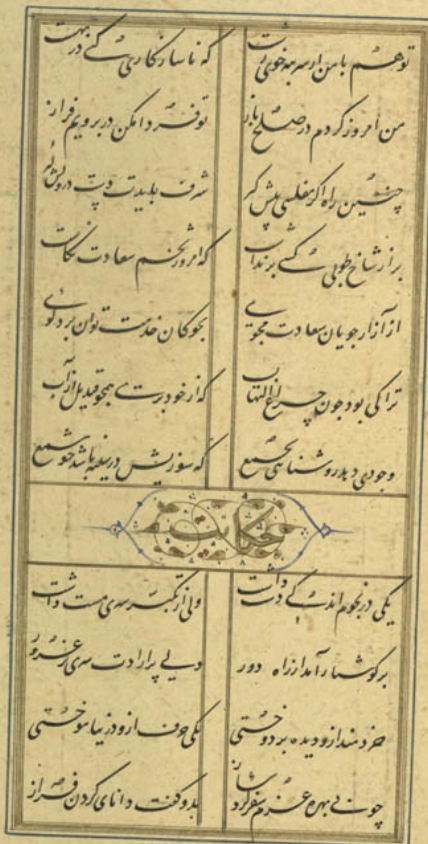 تو هم با من از سر بنه خوی زشت که ناسازگاری کنی در بهشت
من امروز کردم در صلح باز تو فردا مکن در برویم فراز
چنین راه اگر مقبلی پیش گیر شرف بایدت دست درویش گیر
بر از شاخ طوبی کسی برنداشت که امروز تخم سعادت نکاشت
ارادت نداری سعادت مجوی بچوکان خدمت توان برد گوی
ترا کی بود چون چراغ التهاب که از خود پری همچو قندیل از آب
وجودی دهد روشنائی بجمع که سوزیش در سینه باشد چو شمع
حکایت
یکی در نجوم اندکی دست داشت ولی از تکبر سری مست داشت
بر کوشیار آمد از راه دور دلی پر ارادت سری پر غرور
خردمند ازو دیده بر دوختی یکی حرف ازو در نیاموختی
چو بی بهره عزم سفر کرد باز بدو گفت دانای گردن فراز